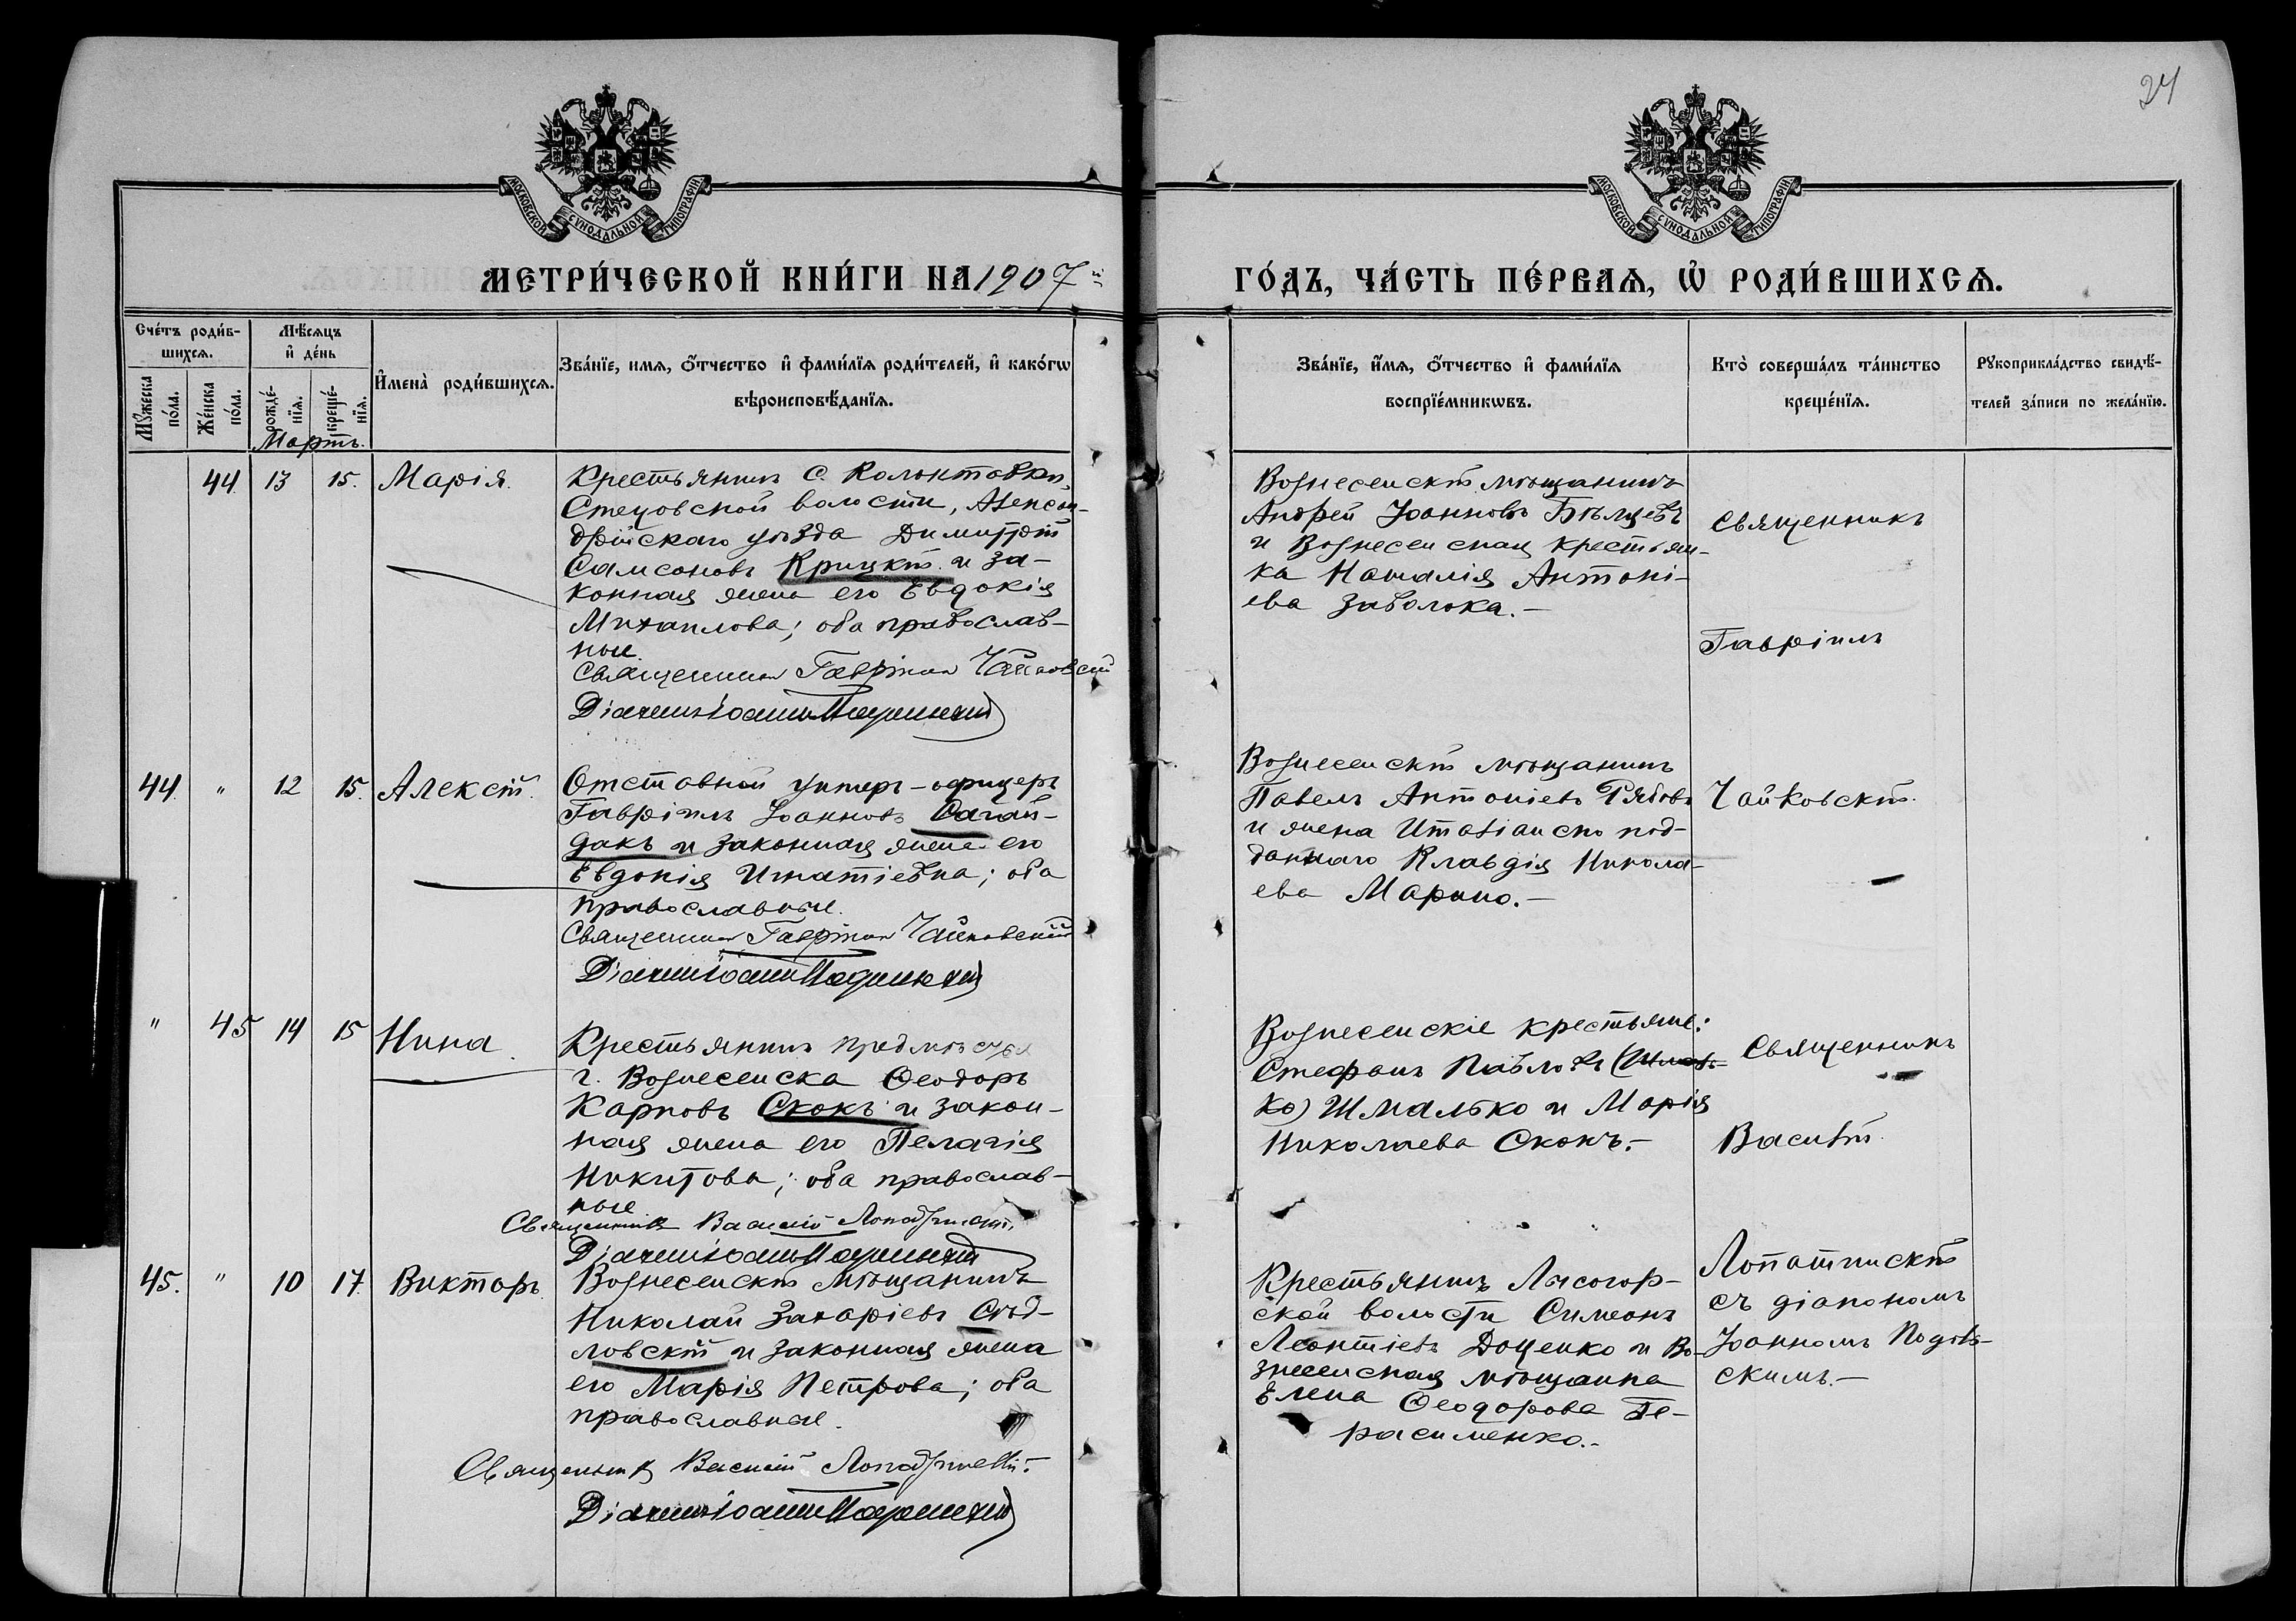 24
МОСКОВСКОЙ СѴНОДАЛЬНОЙ ТИПОГРАФІИ
МОСКОВСКОЙ СѴНОДАЛЬНОЙ ТИПОГРАФІИ
МЕТРИ́ЧЕСКОЙ КНИ́ГИ НА 1907 й
ГО́ДЪ, ЧА́СТЬ ПЕ́РВАѦ, Ѡ҆ РОДИ́ВШИХСѦ.
Сче́тъ роди́в-
шихсѧ.
Мѣ́сѧцъ
и҆ де́нь
И҆мена̀ роди́вшихсѧ.
Зва́нїе, имѧ, ѻ҆́тчество и҆ фами́лїѧ роди́телей, и҆ како́гѡ
вѣроисповѣ́данїѧ.
Мꙋжеска по́ла.
Же́нска по́ла.
рожде́-
нїѧ.
креще́-
нїѧ.
Мартъ.
Зва́нїе, и҆́мѧ, ѻ҆́тчество и҆ фами́лїѧ
воспрїе́мникѡвъ.
Кто̀ соверша́лъ та́инство
креще́нїѧ.
Рꙋкоприкла́дство свидѣ́-
телей за́писи по жела́нїю.
44 13 15. Марія.
Крестьянинъ с. Колонтаевки,
Стецовской волости, Алексан-
дрійскаго уѣзда Димитрій
Самсоновъ Крицкій и за-
конная жена его Евдокія
Михаилова; оба православ-
ные
Священникъ Гавріилъ Чайковскій
Діаконъ Іоаннъ
Вознесенскій мѣщанинъ
Андрей Іоанновъ Бѣлцевъ
и Вознесенская крестьян-
ка Наталія Антоні-
ева Заволока.—
Священникъ
Гавріилъ
44 " 12 15. Алексій.
Отставной унтеръ-офицеръ
Гавріилъ Іоанновъ Сагай-
дакъ и законная жена его
Евдокія Игнатіевна; оба
православные.
Священникъ Гавріилъ Чайковскій
Діаконъ Іоаннъ
Вознесенскій мѣщанинъ
Павелъ Антоніевъ Рябовъ
и жена Италіанско под-
даннаго Клавдія Никола-
ева Марино.—
Чайковскій.
" 45 14 15 Нина.
Крестьянинъ предмѣстья
г. Вознесенска Ѳеодоръ
Карповъ Скокъ и закон-
ная жена его Пелагія
Никитова; оба православ-
ные
Священникъ Василій Лопатинскій.
Діаконъ Іоаннъ
Вознесенскіе крестьяне:
Стефанъ Павловъ (Шмаль-
ко) Шмалько и Марія
Николаева Скокъ.—
Священникъ
Василій
45. " 10 17. Викторъ.
Вознесенскій мѣщанинъ
Николай Захаріевъ Сѣд-
ловскій и законная жена
его Марія Петрова; оба
православные.
Священникъ Василій Лопатинскій.
Діаконъ Іоаннъ
Крестьянинъ Лысогор-
ской волости Симеонъ
Леонтіевъ Доценко и Во-
знесенская мѣщанка
Елена Ѳеодорова Ге-
расименко.-
Лопатинскій
съ діакономъ
Іоанномъ Подѣль-
скимъ.—